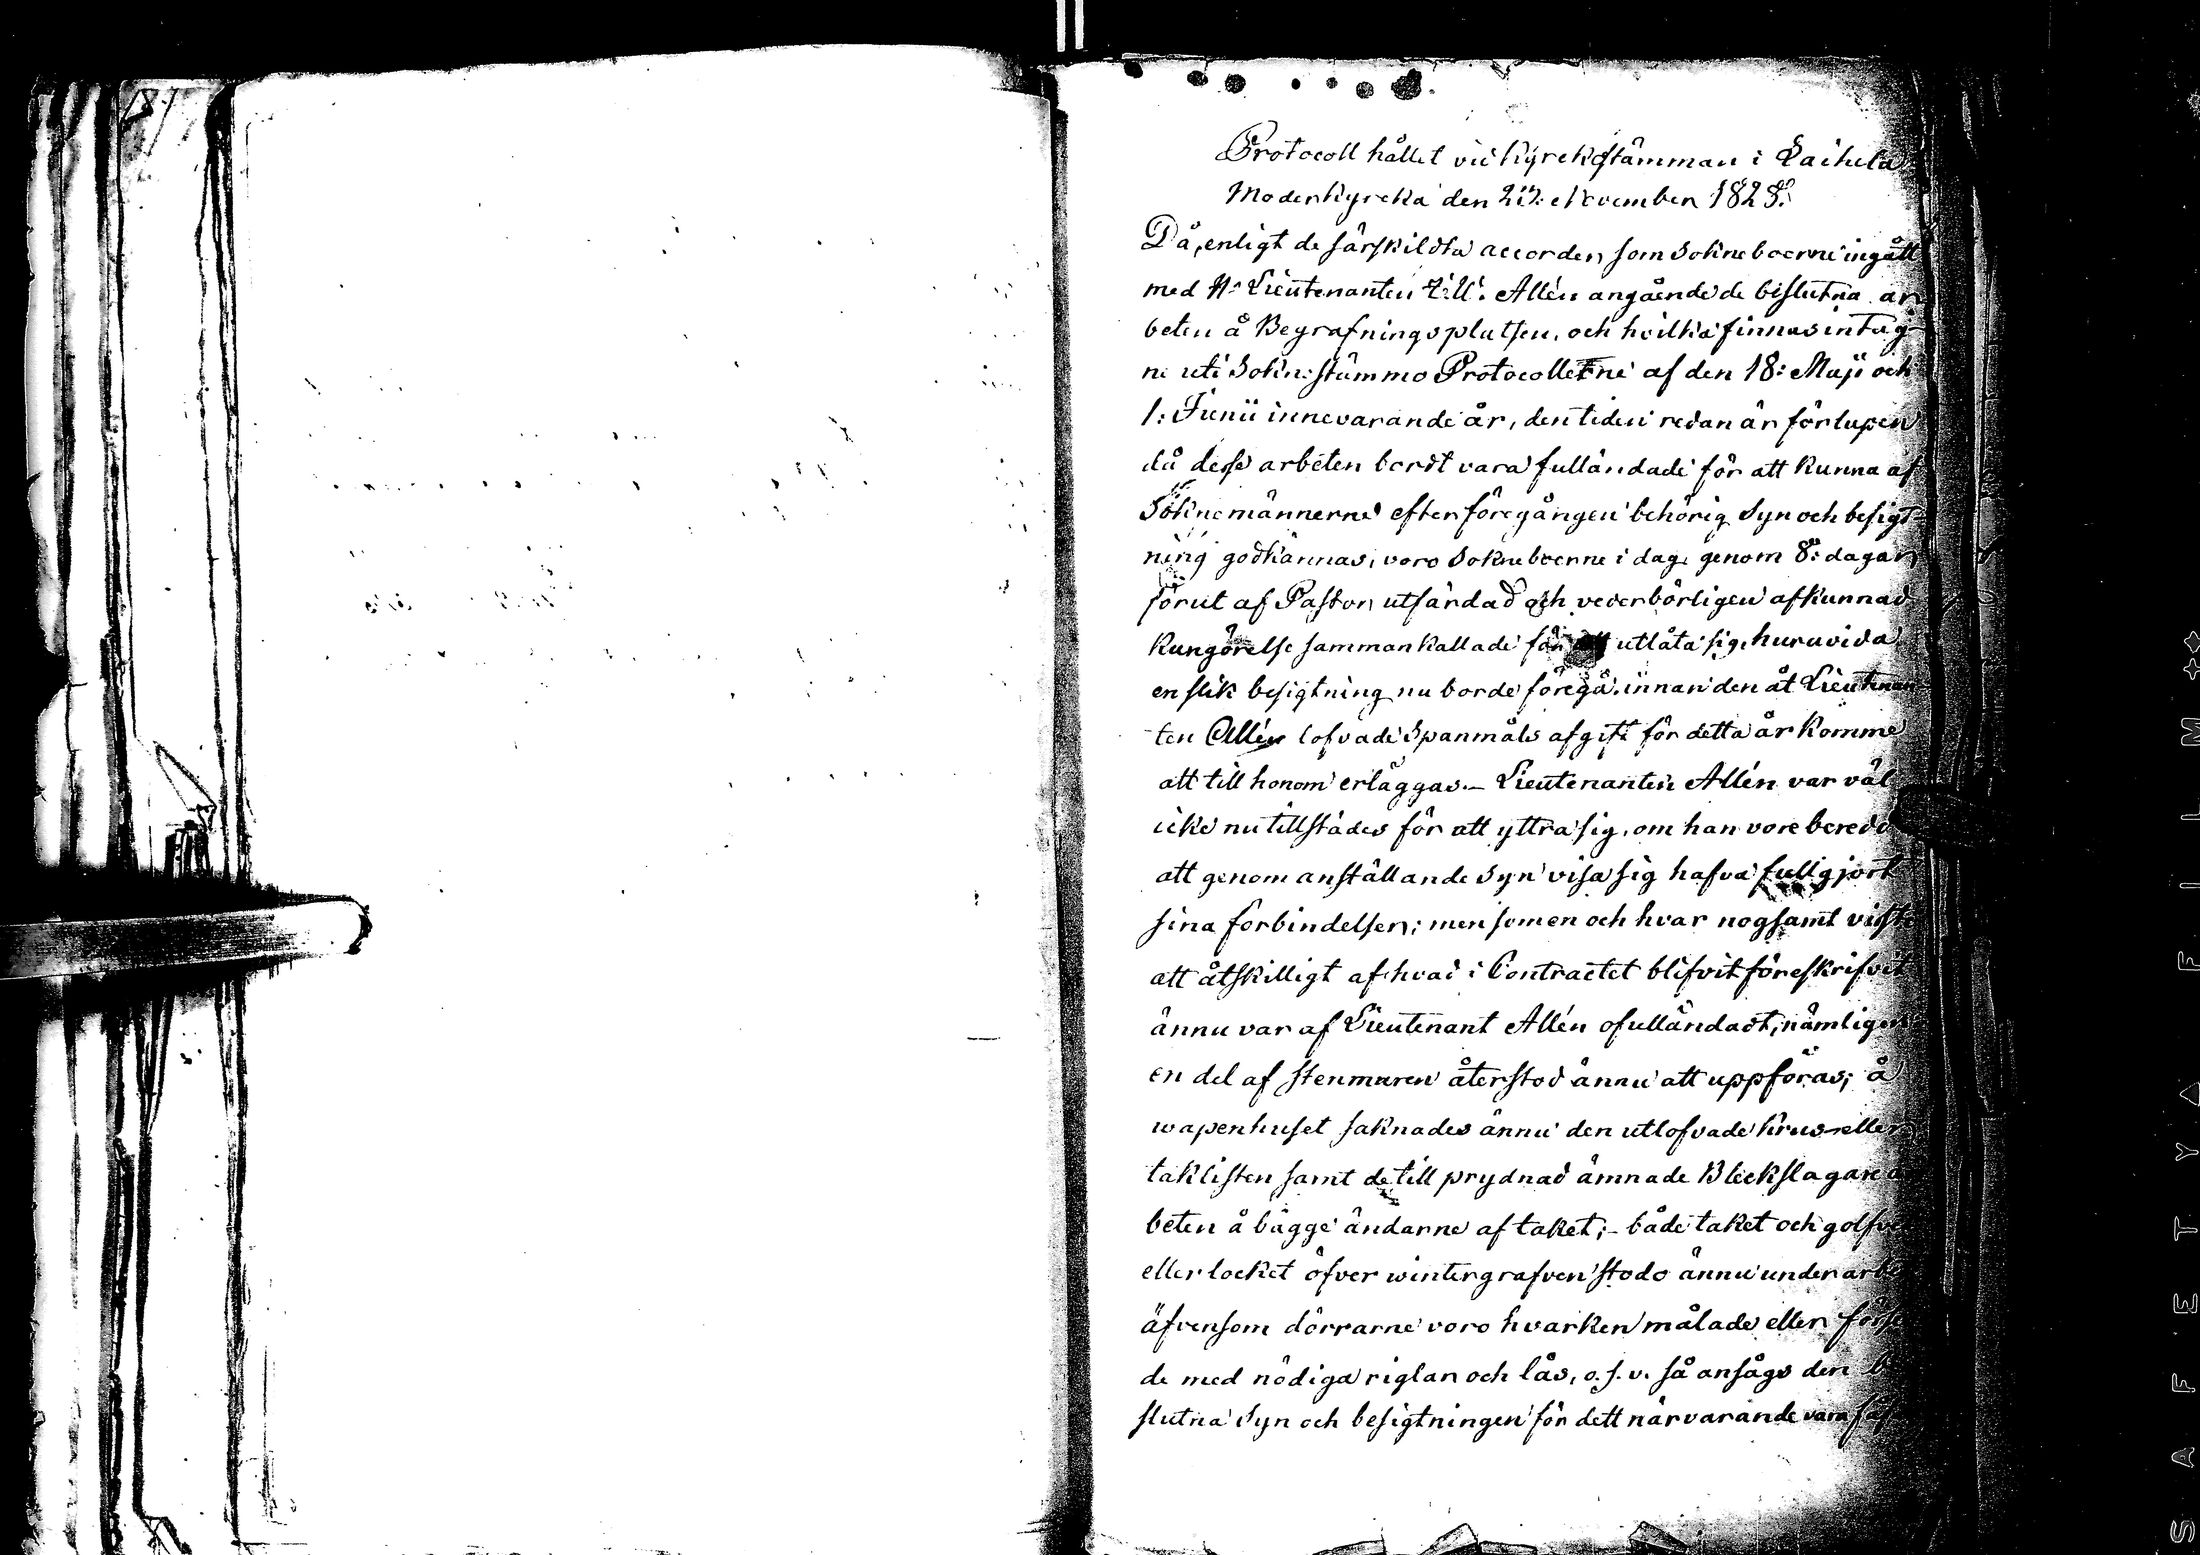 Protocoll hållet vid Kyrckostämman i Laihela
Moderkyrcka den November 182
Då, enligt de särskildta accorder, som Sokneboerne ingått
med Hr Lieutenanten Allén angående de beslutna ar
beten å Begrafningsplatsen, och hvilka finnas intag-
ne uti Sokne stämmo Protocollerne af den 18: Maji och
1: Junii innevarande år, den tiden redan är förlupen
då desse arbeten bordt vara fulländade för att kunna af
Soknemännerne efter föregången behörig Syn och besigt-
ning godkännas, voro Sokneboerne i dag, genom 8: dagar
förut af Pastor utfärdad och vederbörligen afkunnad
Kungörelse sammankallade för att utlåta sig, huruvida
en slik besigtning nu borde föregå, innan den åt Lieutenan-
ten Allén lofvade Spanmåls afgift för detta år komme
att till honom erläggas.— Lieutenanten Allén var väl
icke nu tillstädes för att yttra sig, om han vore beredd
att genom anställande Syn visa sig hafva fullgjort
sina förbindelser; men som en och hvar nogsamt visste
att åtskilligt af hvad i Contractet blifvit föreskrifvit
ännu var af Lieutenant Allén ofulländadt, nämligen
en del af stenmuren återstod ännu att uppföras; å
wapenhuset saknades ännu den utlofvade krus- eller
taklisten samt de till prydnad ämnade Bleckslagare a
beten å bägge ändarne af taket;- både taket och golfve
eller locket öfver wintergrafven stodo ännu under arbe
äfvensom dörrarne voro hvarken målade eller förse
de med nödiga riglar och lås, o.s.v. så ansågs den b
slutna Syn och besigtningen för dett närvarande vara
SAFETY FILM